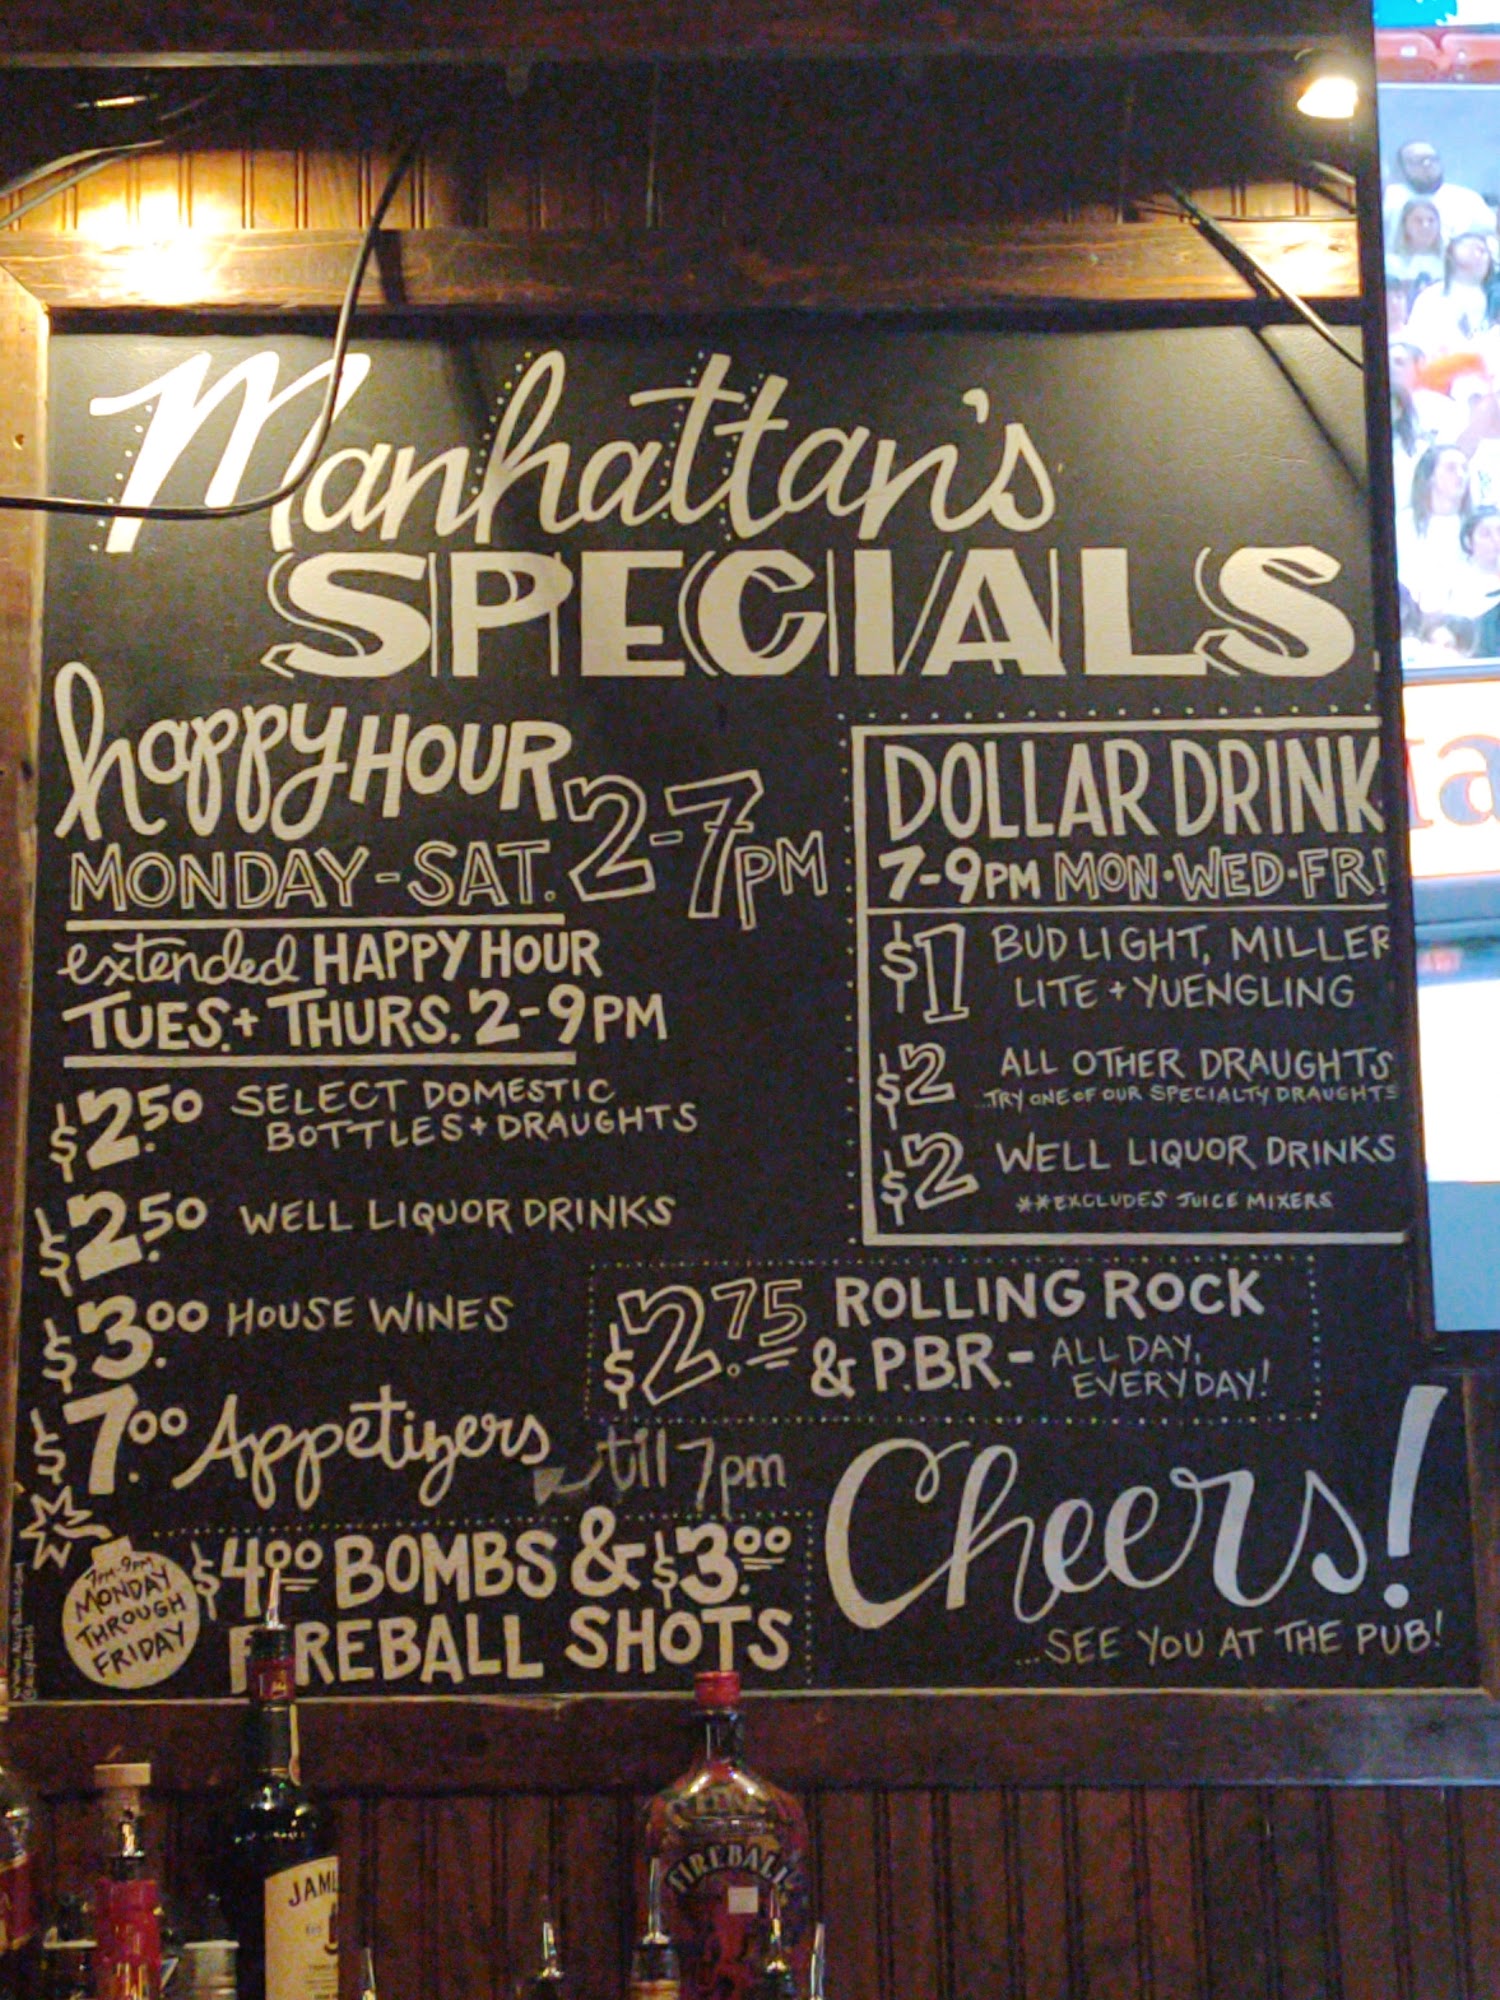 Manhattan's
SPECIALS
happy HOUR
MONDAY-SAT. 2-7PM
extended HAPPY HOUR
TUES.+ THURS. 2-9PM
$2.50 SELECT DOMESTIC
BOTTLES+DRAUGHTS
$2.50 WELL LIQUOR DRINKS
$3.00 HOUSE WINES
$7.00 Appetizers 'til 7pm
7PM-9PM
MONDAY
THROUGH
FRIDAY
$4.00 BOMBS & $3.00
FIREBALL SHOTS
DOLLAR DRINK
7-9PM MON•WED•FRI
$1 BUD LIGHT, MILLER
LITE + YUENGLING
$2 ALL OTHER DRAUGHTS
...TRY ONE OF OUR SPECIALTY DRAUGHTS
$2 WELL LIQUOR DRINKS
**EXCLUDES JUICE MIXERS
$2.75 ROLLING ROCK
& P.B.R.- ALL DAY,
EVERYDAY!
Cheers!
...SEE YOU AT THE PUB!
JAM
FIREBALL